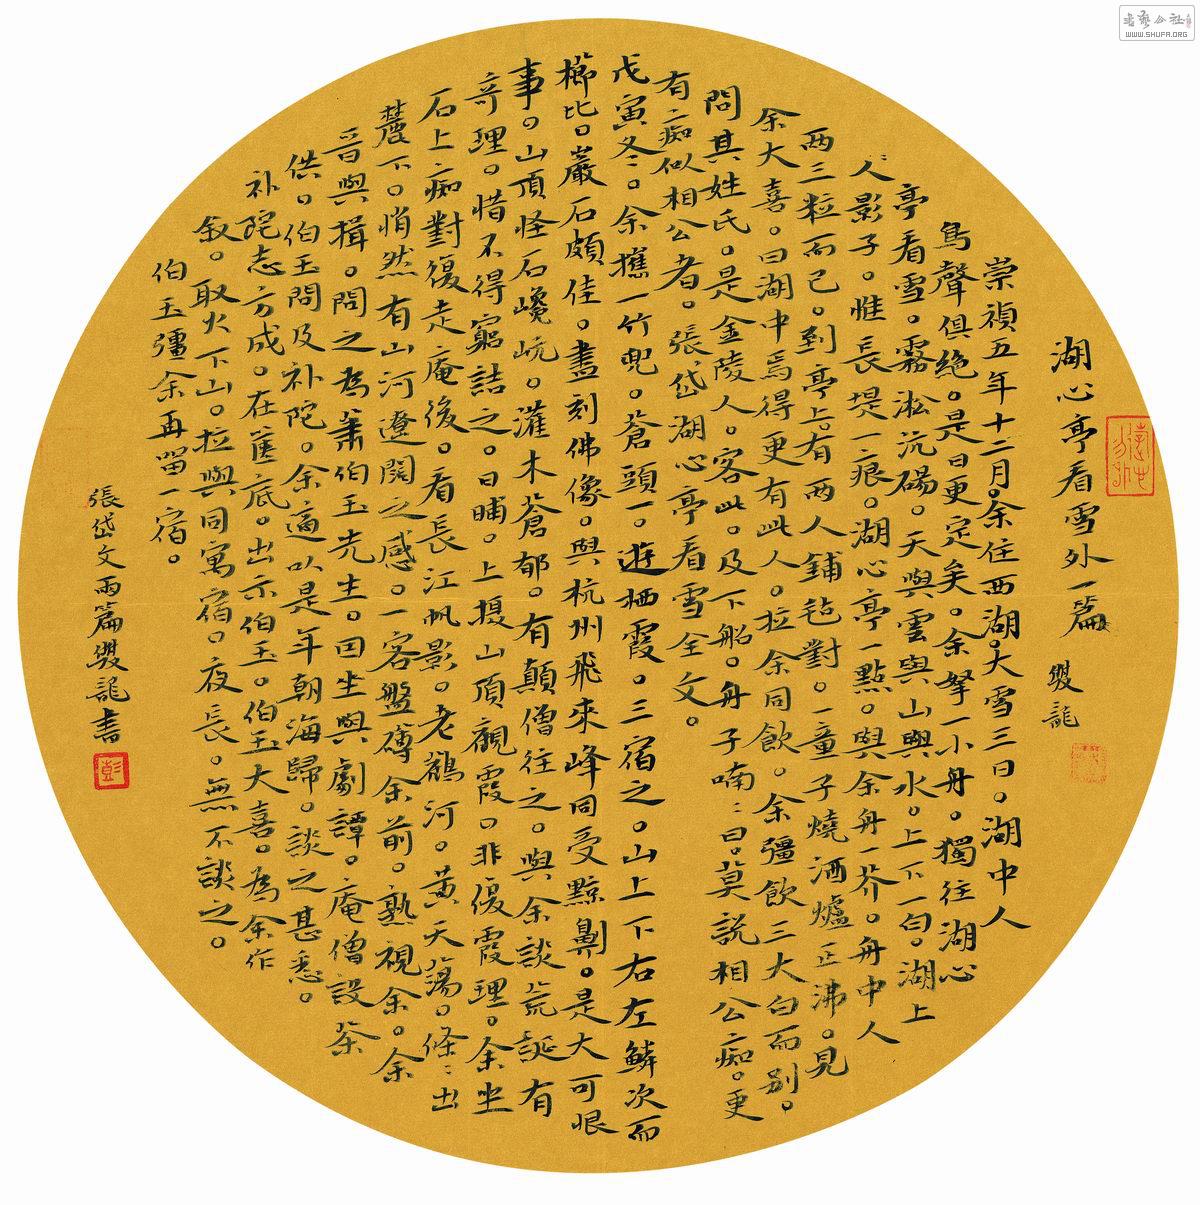 湖心亭看雪外一篇 雙龍
崇禎五年十二月。余住西湖。大雪三日。湖中人
鳥聲俱絕。是日更定矣。余拏一小舟。獨往湖心
亭看雪。霧淞沆碭。天與雲與山與水。上下一白。湖上
人影子。惟長堤一痕。湖心亭一點。與余舟一芥。舟中人
两三粒而已。到亭上。有两人鋪毡對。一童子燒酒爐正沸。見
余大喜。曰湖中焉得更有此人。拉余同飲。余彊飲三大白而别。
問其姓氏。是金陵人。客此。及下船。舟子喃：曰。莫說相公痴。更
有痴似相公者。張岱湖心亭看雪全文。
戊寅冬：。余攜一竹兜。蒼頭一。遊栖霞。三宿之。山上下右左鱗次而
櫛比。巖石頗佳。盡刻佛像。與杭州飛來峰同受黥劓。是大可恨
事。山頂怪石巉岏。灌木蒼郁。有顛僧往之。與余談荒誕有
奇理。惜不得窮詰之。日晡。上攝山頂觀霞。非復霞理。余坐
石上痴對復走庵後。看長江帆影。老鸛河。黃天蕩。條：出
麓下。悄然有山河遼闊之感。一客盤礴余前。熟視余。余
晋與揖。問之為蕭伯玉先生。因坐與劇譚。庵僧設茶
供。伯玉問及补陀。余適以是年朝海歸。談之甚悉。
补陀志方成。在篋底。出示伯玉。伯玉大喜。為余作
叙。取火下山。拉與同寓宿。夜長。無不談之。
伯玉彊余再留一宿。
張岱文兩篇雙龍書
彭
WWW.SHUFA.ORG